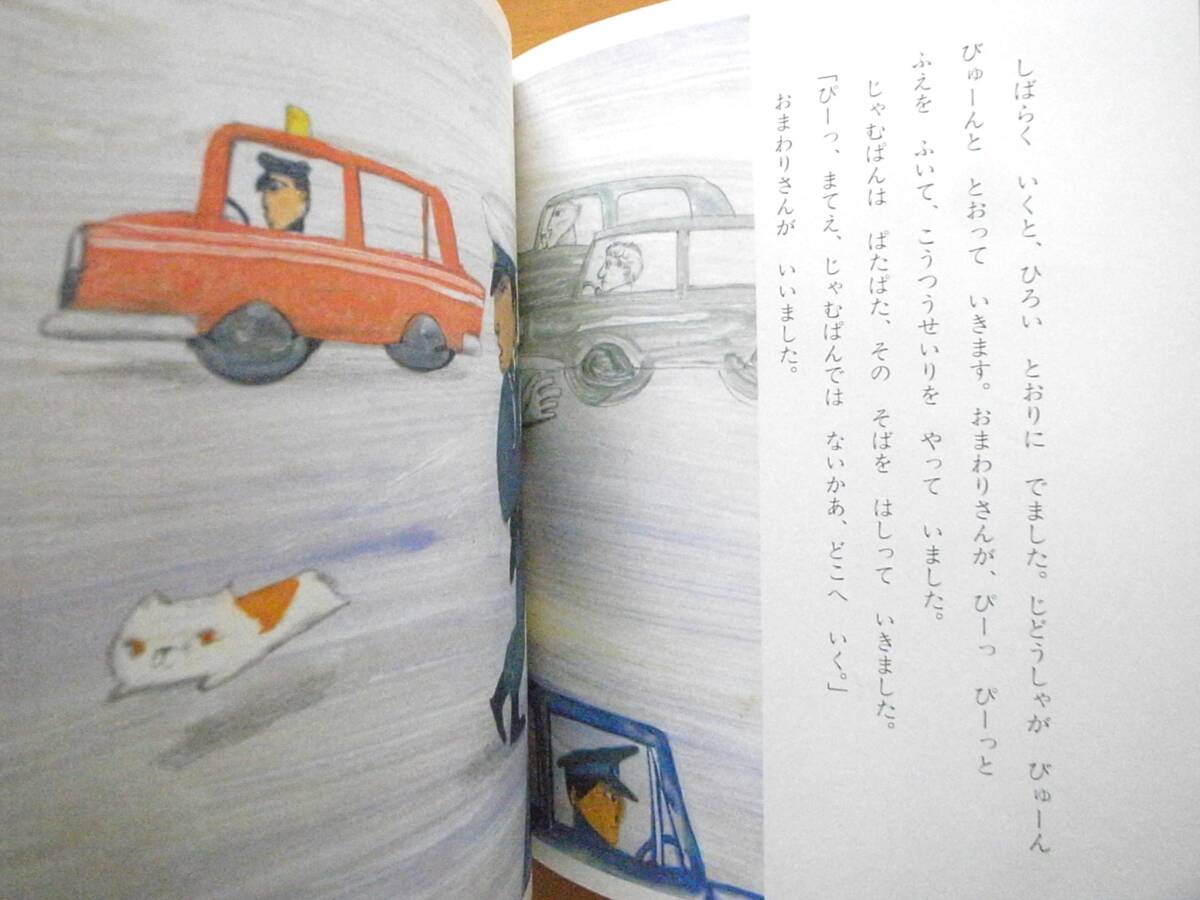 しばらく　いくと、ひろい　とおりに　でました。じどうしゃが　びゅーん
びゅーんと　とおって　いきます。おまわりさんが、ぴーっ　ぴーっと
ふえを　ふいて、こうつうせいりを　やって　いました。
じゃむぱんは　ぱたぱた、その　そばを　はしって　いきました。
「ぴーっ、まてえ、じゃむぱんでは　ないかあ、どこへ　いく。」
おまわりさんが　いいました。